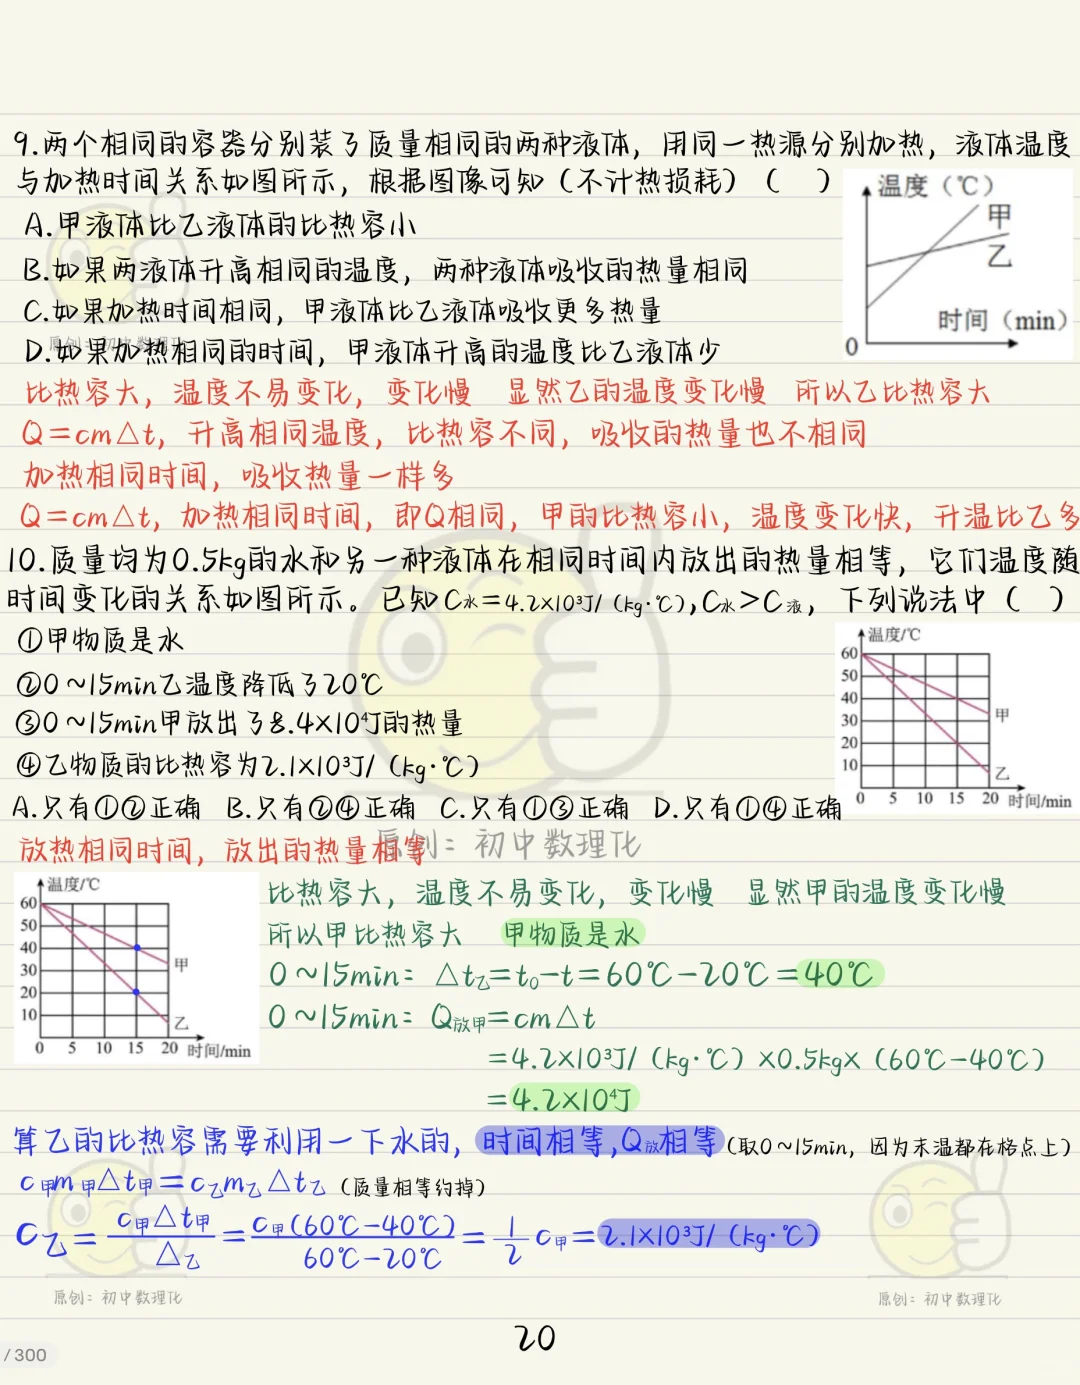 9.两个相同的容器分别装了质量相同的两种液体，用同一热源分别加热，液体温度
与加热时间关系如图所示，根据图像可知（不计热损耗）（　）
温度（℃）
甲
乙
时间（min）
0
A.甲液体比乙液体的比热容小
B.如果两液体升高相同的温度，两种液体吸收的热量相同
C.如果加热时间相同，甲液体比乙液体吸收更多热量
D.如果加热相同的时间，甲液体升高的温度比乙液体少
原创：初中数理化
比热容大，温度不易变化，变化慢 显然乙的温度变化慢 所以乙比热容大
Q=cm△t，升高相同温度，比热容不同，吸收的热量也不相同
加热相同时间，吸收热量一样多
Q=cm△t，加热相同时间，即Q相同，甲的比热容小，温度变化快，升温比乙多
10.质量均为0.5kg的水和另一种液体在相同时间内放出的热量相等，它们温度随
时间变化的关系如图所示。已知C水=4.2×10³J/（kg·℃），C水>C液，下列说法中（　）
①甲物质是水
②0~15min乙温度降低了20℃
③0~15min甲放出了8.4×10⁴J的热量
④乙物质的比热容为2.1×10³J/（kg·℃）
A.只有①②正确 B.只有②④正确 C.只有①③正确 D.只有①④正确
温度/℃
60
50
40
30
20
10
甲
乙
0 5 10 15 20 时间/min
放热相同时间，放出的热量相等
原创：初中数理化
温度/℃
60
50
40
30
20
10
甲
乙
0 5 10 15 20 时间/min
比热容大，温度不易变化，变化慢 显然甲的温度变化慢
所以甲比热容大 甲物质是水
0~15min：△t乙=t₀-t=60℃-20℃=40℃
0~15min：Q放甲=cm△t
=4.2×10³J/（kg·℃）×0.5kg×（60℃-40℃）
=4.2×10⁴J
算乙的比热容需要利用一下水的，时间相等,Q放相等（取0~15min，因为末温都在格点上）
c甲m甲△t甲=c乙m乙△t乙（质量相等约掉）
C乙=c甲△t甲/△乙=c甲(60℃-40℃)/60℃-20℃=1/2c甲=2.1×10³J/（kg·℃）
原创：初中数理化
原创：初中数理化
20
/ 300